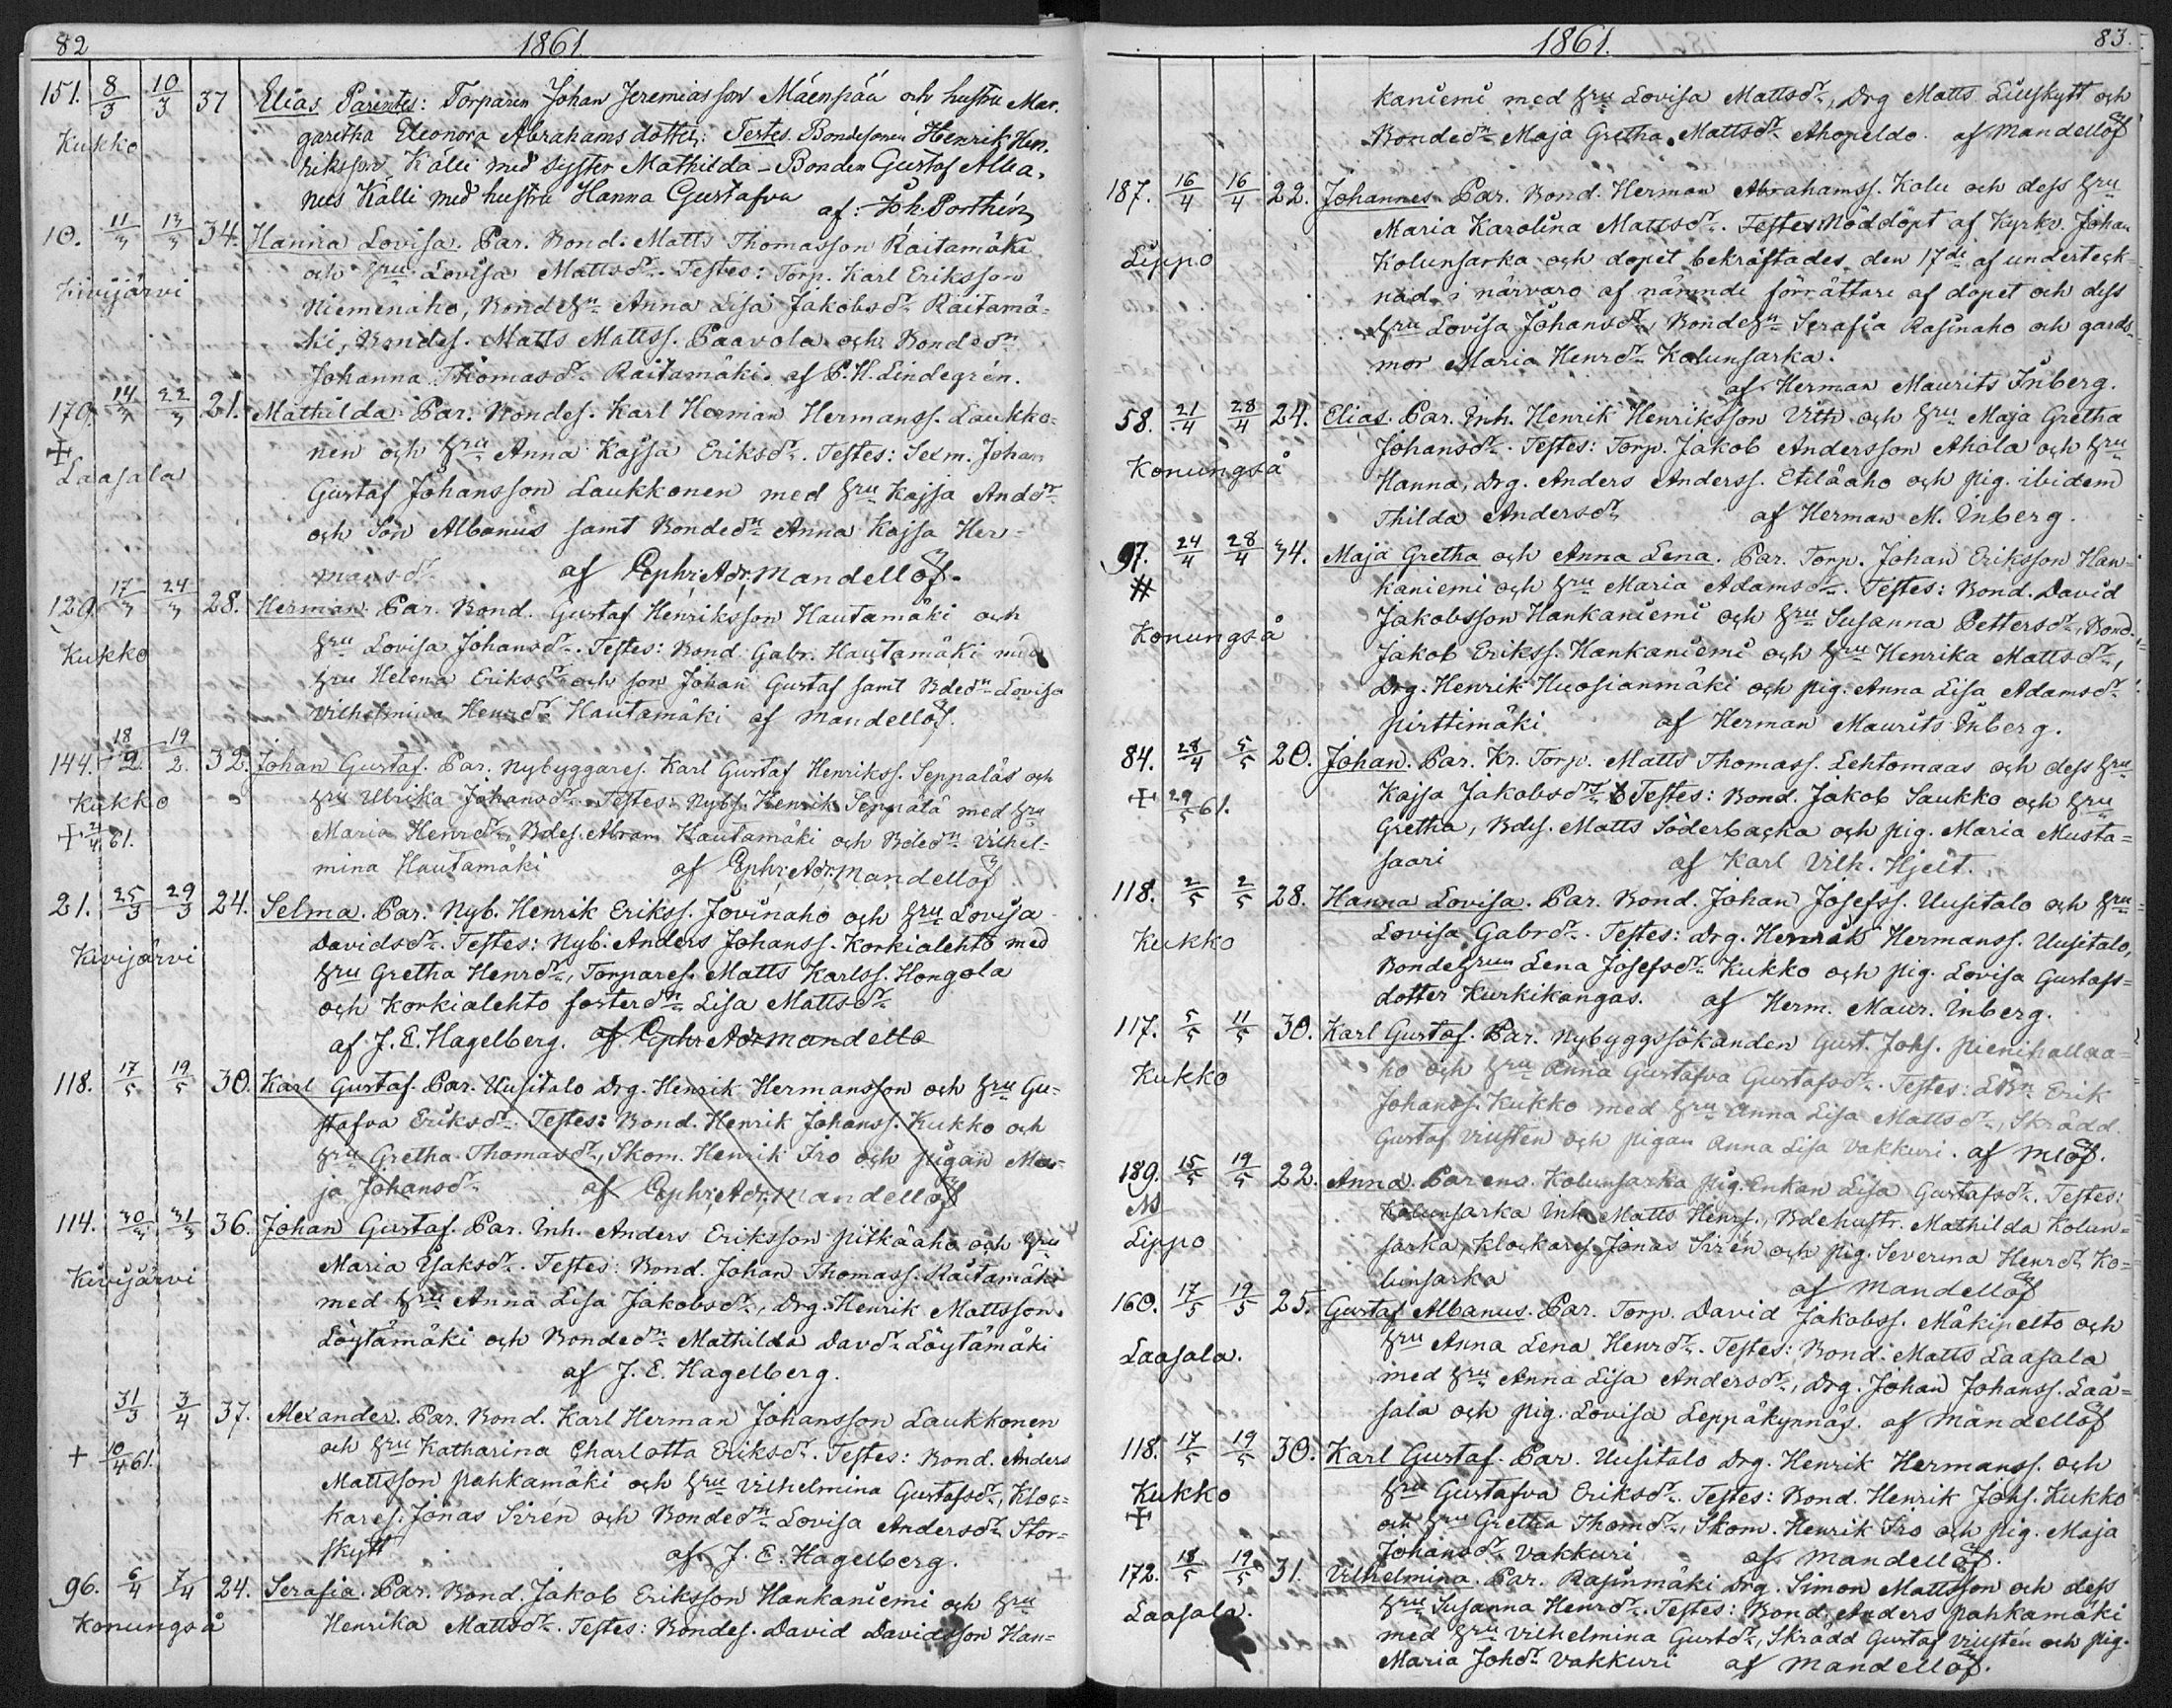 82 1861.
151. 8/3 10/3 37 Elias Parentes: Torparen Johan Jeremiasson Mäenpää och hustru Mar-
Kukko garetha Eleonora Abrahamsdotter: Testes. Bondesonen Henrik Hen-
riksson Källi med syster Mathilda - Bonden Gustaf Alba-
nus Kalli med hustru Hanna Gustafva af: Joh. Porthén
10. 11/3 13/3 34. Hanna Lovisa. Par. Bond. Matts Thomasson Raitamäki
Kivijärvi och hru Lovisa Mattsdr. Testes: Torp. Karl Eriksson
Niemenaho, Bondehn Anna Lisa Jakobsdr Raitamä-
ki, Bondes. Matts Mattss. Paavola och Bondedn
Johanna Thomasdr Raitamäki. af P. H. Lindegrén.
170. 14/3 22/3 21. Mathilda. Par. Bondes. Karl Herman Hermanss. Laukko-
+ nen och hru Anna Kajsa Eriksdr. Testes: Sexm. Johan
Laasala Gustaf Johansson Laukkonen med hru Kajsa Anddr
och Son Albanus samt Bondedn Anna Kajsa Her-
mansdr af Ephr. Adr. Mandellöf.
129. 17/3 24/3 28. Herman. Par. Bond. Gustaf Henriksson Hautamäki och
Kukko hru Lovisa Johansdr. Testes: Bond. Gabr. Hautamäki med
hru Helena Eriksdr och son Johan Gustaf samt Bdedn Lovisa
Vilhelmina Henrdr Hautamäki af Mandellöf.
144. 18/2 19/2. 32. Johan Gustaf. Par. Nybyggares. Karl Gustaf Henrikss. Seppäläs och
Kukko hru Ulrika Johansdr. Testes: Nybs. Henrik Seppälä med hru
+ 2/4 61. Maria Henrdr, Bdes. Abram Hautamäki och Bdedn Vilhel-
mina Hautamäki af Ephr. Adr. Mandellöf
21. 25/3 29/3 24. Selma. Par. Nyb. Henrik Erikss. Jovinaho och hru Lovisa
Kivijärvi Davidsdr. Testes: Nyb. Anders Johanss. Korkialehto med
hru Gretha Henrdr, Torpares. Matts Karlss. Hongola
och Korkialehto fosterdn Lisa Mattsdr
af J. E. Hagelberg. af Ephr Adr Mandello
118. 17/5 19/5 30. Karl Gustaf. Par. Uusitalo Drg. Henrik Hermansson och hru Gu-
stafva Eriksdr. Testes: Bond. Henrik Johanss. Kukko och
hru Gretha Thomasdr, Skom. Henrik Iro och pigan Ma-
ja Johansdr af Ephr. Adr. Mandellöf
114. 30/3 31/3 36. Johan Gustaf. Par. Inh. Anders Eriksson Pitkäaho och hru
Kivijärvi Maria Isaksdr. Testes: Bond. Johan Thomass. Raitamäki
med hru Anna Lisa Jakobsdr, Drg. Henrik Mattsson
Löytämäki och Bondedn Mathilda Davdr Löytämäki
af J. E. Hagelberg.
31/3 3/4 37. Alexander. Par. Bond. Karl Herman Johansson Laukkonen
+ 10/4 61. och hru Katharina Charlotta Eriksdr. Testes: Bond. Anders
Mattsson Pahkamäki och hru Vilhelmina Gustafsdr, Kloc-
kares. Jonas Sirén och Bondedn Lovisa Andersdr Stor-
skytt af J. E. Hagelberg.
96. 6/4 7/4 24. Serafia. Par. Bond. Jakob Eriksson Hankaniemi och hru
Konungså Henrika Mattsdr. Testes: Bondes. David Davidsson Han-
1861. 83.
kaniemi med hru Lovisa Mattsdr, Drg Matts Lillskytt och
Bondedn Maja Gretha Mattsdr Ahopeldo. af Mandellöf
187. 16/4 16/4 22. Johannes. Par. Bond. Herman Abrahamss. Kolu och dess hru
Maria Karolina Mattsdr. Testes Nöddöpt af Kyrkv. Johan
Lippo Kolunsarka och dopet bekräftades den 17de af underteck-
nad i närvaro af nämnde förrättare af dopet och dess
hru Lovisa Johansdr, Bondehn Serafia Rasinaho och gards-
mor Maria Henrdr Kolunsarka.
af Herman Maurits Inberg.
58. 21/4 28/4 24. Elias. Par. Inh. Henrik Henriksson Vith och hru Maja Gretha
Johansdr. Testes: Torp. Jakob Andersson Ahola och hru
Konungså Hanna, Drg. Anders Anderss. Etiläaho och pig. ibidem
Thilda Andersdr af Herman M. Inberg.
97. 24/4 28/4 34. Maja Gretha och Anna Lena. Par. Torp. Johan Eriksson Han-
# kaniemi och hru Maria Adamsdr. Testes: Bond. David
Konungså Jakobsson Hankaniemi och hru Susanna Pettersdr, Bond.
Jakob Erikss. Hankaniemi och hru Henrika Mattsdr,
Drg. Henrik Huosianmäki och pig. Anna Lisa Adamsdr
Pirttimäki af Herman Maurits Inberg.
84. 28/4 5/5 20. Johan. Par. Kr. Torp. Matts Thomass. Lehtomaas och dess hru
+ 29/5 61. Kajsa Jakobsdr. Testes: Bond. Jakob Saukko och hru
Gretha, Bds. Matts Söderbacka och pig. Maria Musta-
saari af Karl Vilh. Hjelt.
118. 2/5 2/5 28. Hanna Lovisa. Par. Bond. Johan Josefss. Uusitalo och hru
Kukko Lovisa Gabrdr. Testes: Drg. Henrik Hermanss. Uusitalo,
Bondehrun Lena Josefsdr Kukko och pig. Lovisa Gustafs-
dotter Kurkikangas. af Herm. Maur. Inberg.
117. 5/5 11/5 30. Karl Gustaf. Par. Nybyggssökanden Gust. Johs. Pienihallaa-
Kukko ho och hru Anna Gustafva Gustafsdr. Testes: LBn Erik
Johanss. Kukko med hru Anna Lisa Mattsdr, Skrädd.
Gustaf Viustén och pigan Anna Lisa Vakkuri. af Mlöf.
189. 15/5 19/5 22. Anna. Parens. Kolunsarka pig. Enkan Lisa Gustafsdr. Testes:
Kolunsarka Inh. Matts Henrs., Bdehustr. Mathilda Kolun-
Lippo sarka, Klockares. Jonas Sirén och pig. Severina Henrdr Ko-
lunsarka af Mandellöf
160. 17/5 19/5 25. Gustaf Albanus. Par. Torp. David Jakobss. Mäkipelto och
Laasala. hru Anna Lena Henrdr. Testes: Bond. Matts Laasala
med hru Anna Lisa Andersdr, Drg. Johan Johanss. Laa-
sala och pig. Lovisa Leppäkynnäs. af Mandellöf
118. 17/5 19/5 30. Karl Gustaf. Par. Uusitalo Drg. Henrik Hermanss. och
Kukko hru Gustafva Eriksdr. Testes: Bond. Henrik Johs. Kukko
+ och hru Gretha Thomdr, Skom. Henrik Iro och pig. Maja
Johansdr Vakkuri af Mandellöf.
172. 18/5 19/5 31. Vilhelmina. Par. Rasinmäki Drg. Simon Mattsson och dess
Laasala. hru Susanna Henrdr. Testes: Bond. Anders Pahkamäki
med hru Vilhelmina Gustdr, Skrädd Gustaf Viustén och pig.
Maria Johdr Vakkuri af Mandellöf.